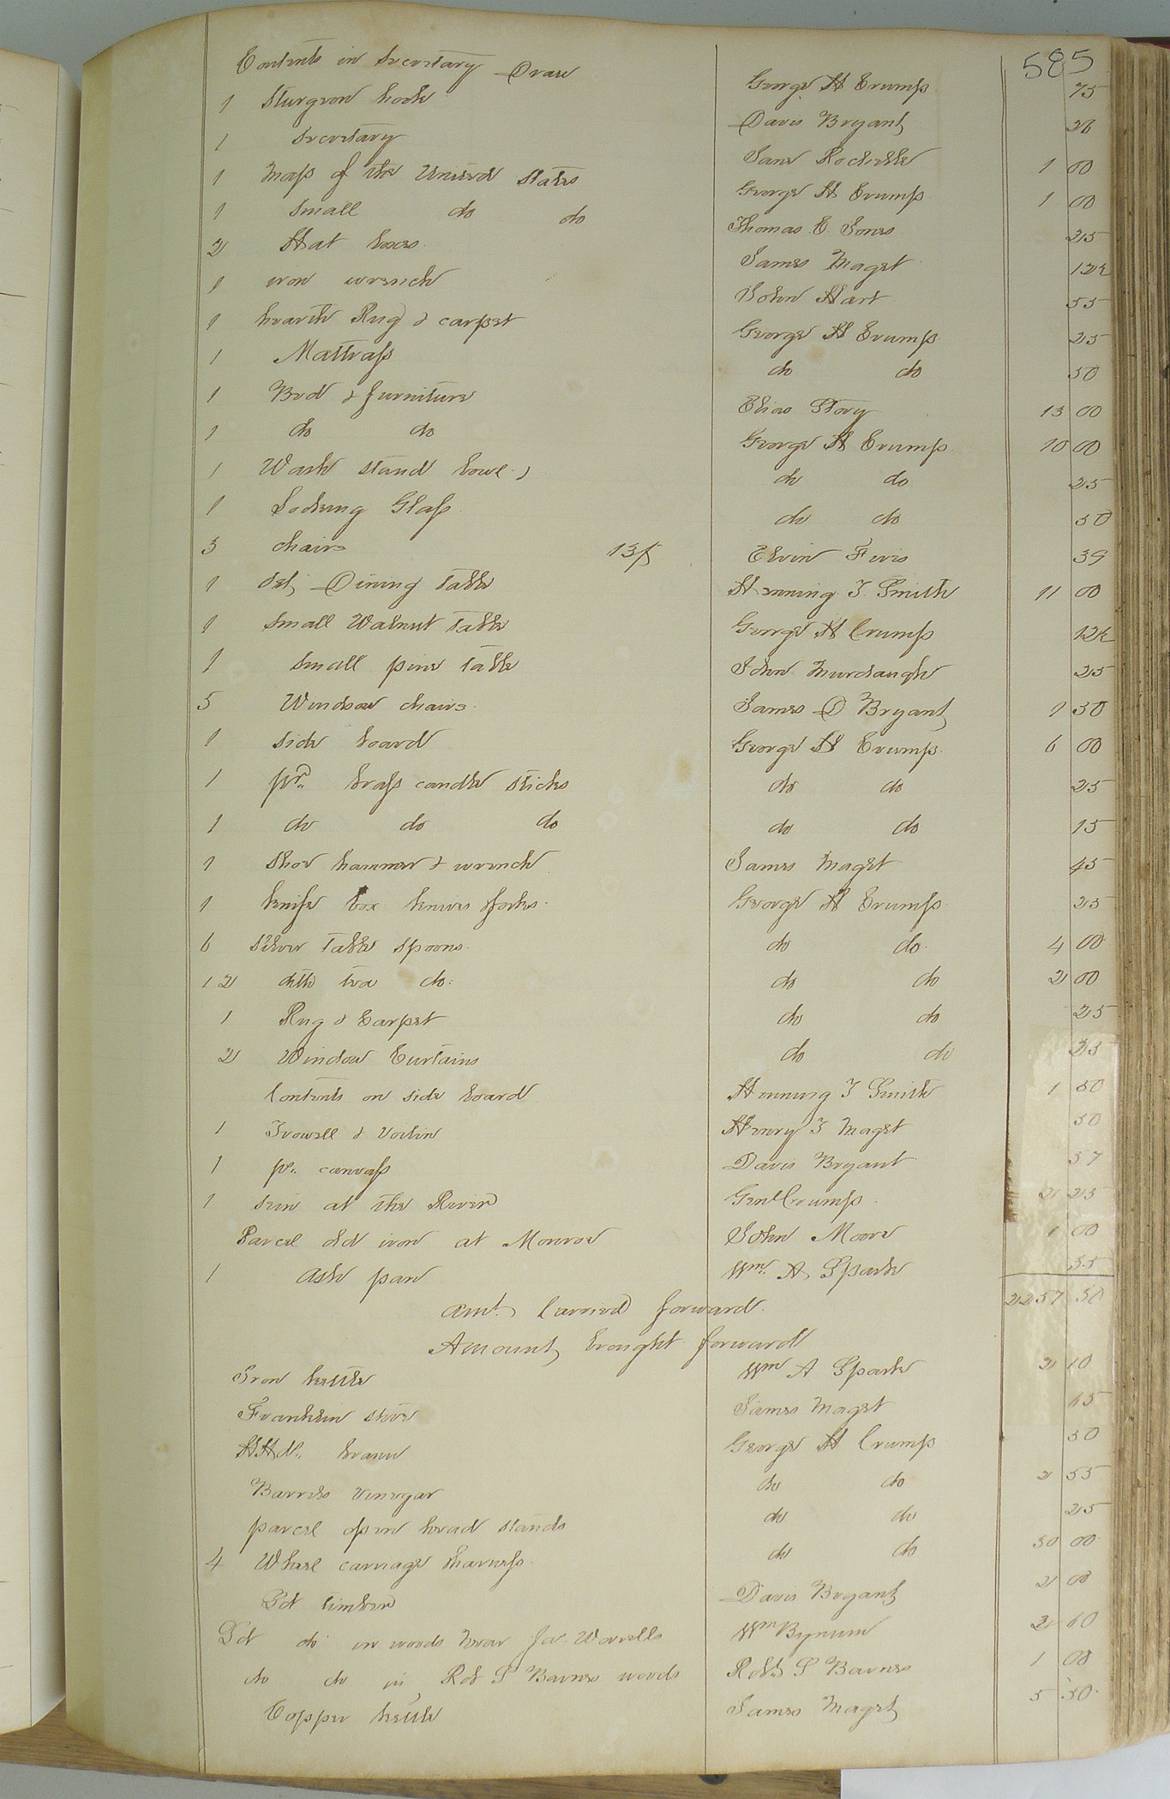 585
Contents in Secretary Draw George H Crump 75
1 Sturgeon hook Davis Bryant 26
1 Secretary Jane Rochelle 1 00
1 Map of the United States George H Crump 1 00
1 Small do do Thomas E Jones 25
2 Hat boxes James Maget 12½
1 iron wrench John Hart 55
1 hearth Rug & carpet George H Crump 25
1 Mattrass do do 50
1 Bed & furniture Elias Story 13 00
1 do do George H Crump 10 00
1 Wash stand bowl & do do 25
1 Looking Glass do do 50
3 chairs 13 Elvin 39
1 Set Dining Table Henning T Smith 11 00
1 Small Walnut Table George H Crump 12½
1 Small pine Table John Murdaugh 25
5 Windsor chairs James D Bryant 1 50
1 Side board George H Crump 6 00
1 pr. brass candle sticks do do 25
1 do do do do do 15
1 Shoe hammer & wrench James Maget 45
1 knife box knives forks George H Crump 25
6 Silver Table Spoons do do 4 00
12 ditto tea do do do 2 00
1 Rug & Carpet do do 25
2 Window Curtains do do 25
Contents on Side board Henning T Smith 1 50
1 Trowell & Henry T Maget 50
1 pr. canvass Davis Bryant 57
1 Sein at the River Geo Crump 2 25
Parcel old iron at Monroe John Moore 1 00
1 Ash pan Wm. A Spark 55
amt. Carried forward 2257 50
Amount brought forward
Iron kettle Wm A Spark 2 10
Franklin stove James Maget 15
HHd. George H Crump 50
Barrels vinegar do do 2 55
parcel open head stands do do 25
4 Wheel carriage Harness do do 50 00
Lot timber Davis Bryant 2 00
Lot do in woods near Ja Worrells Wm Bynum 2 60
do do in Rob S Barnes woods Robt S Barnes 1 00
Copper kettle James Maget 5 50